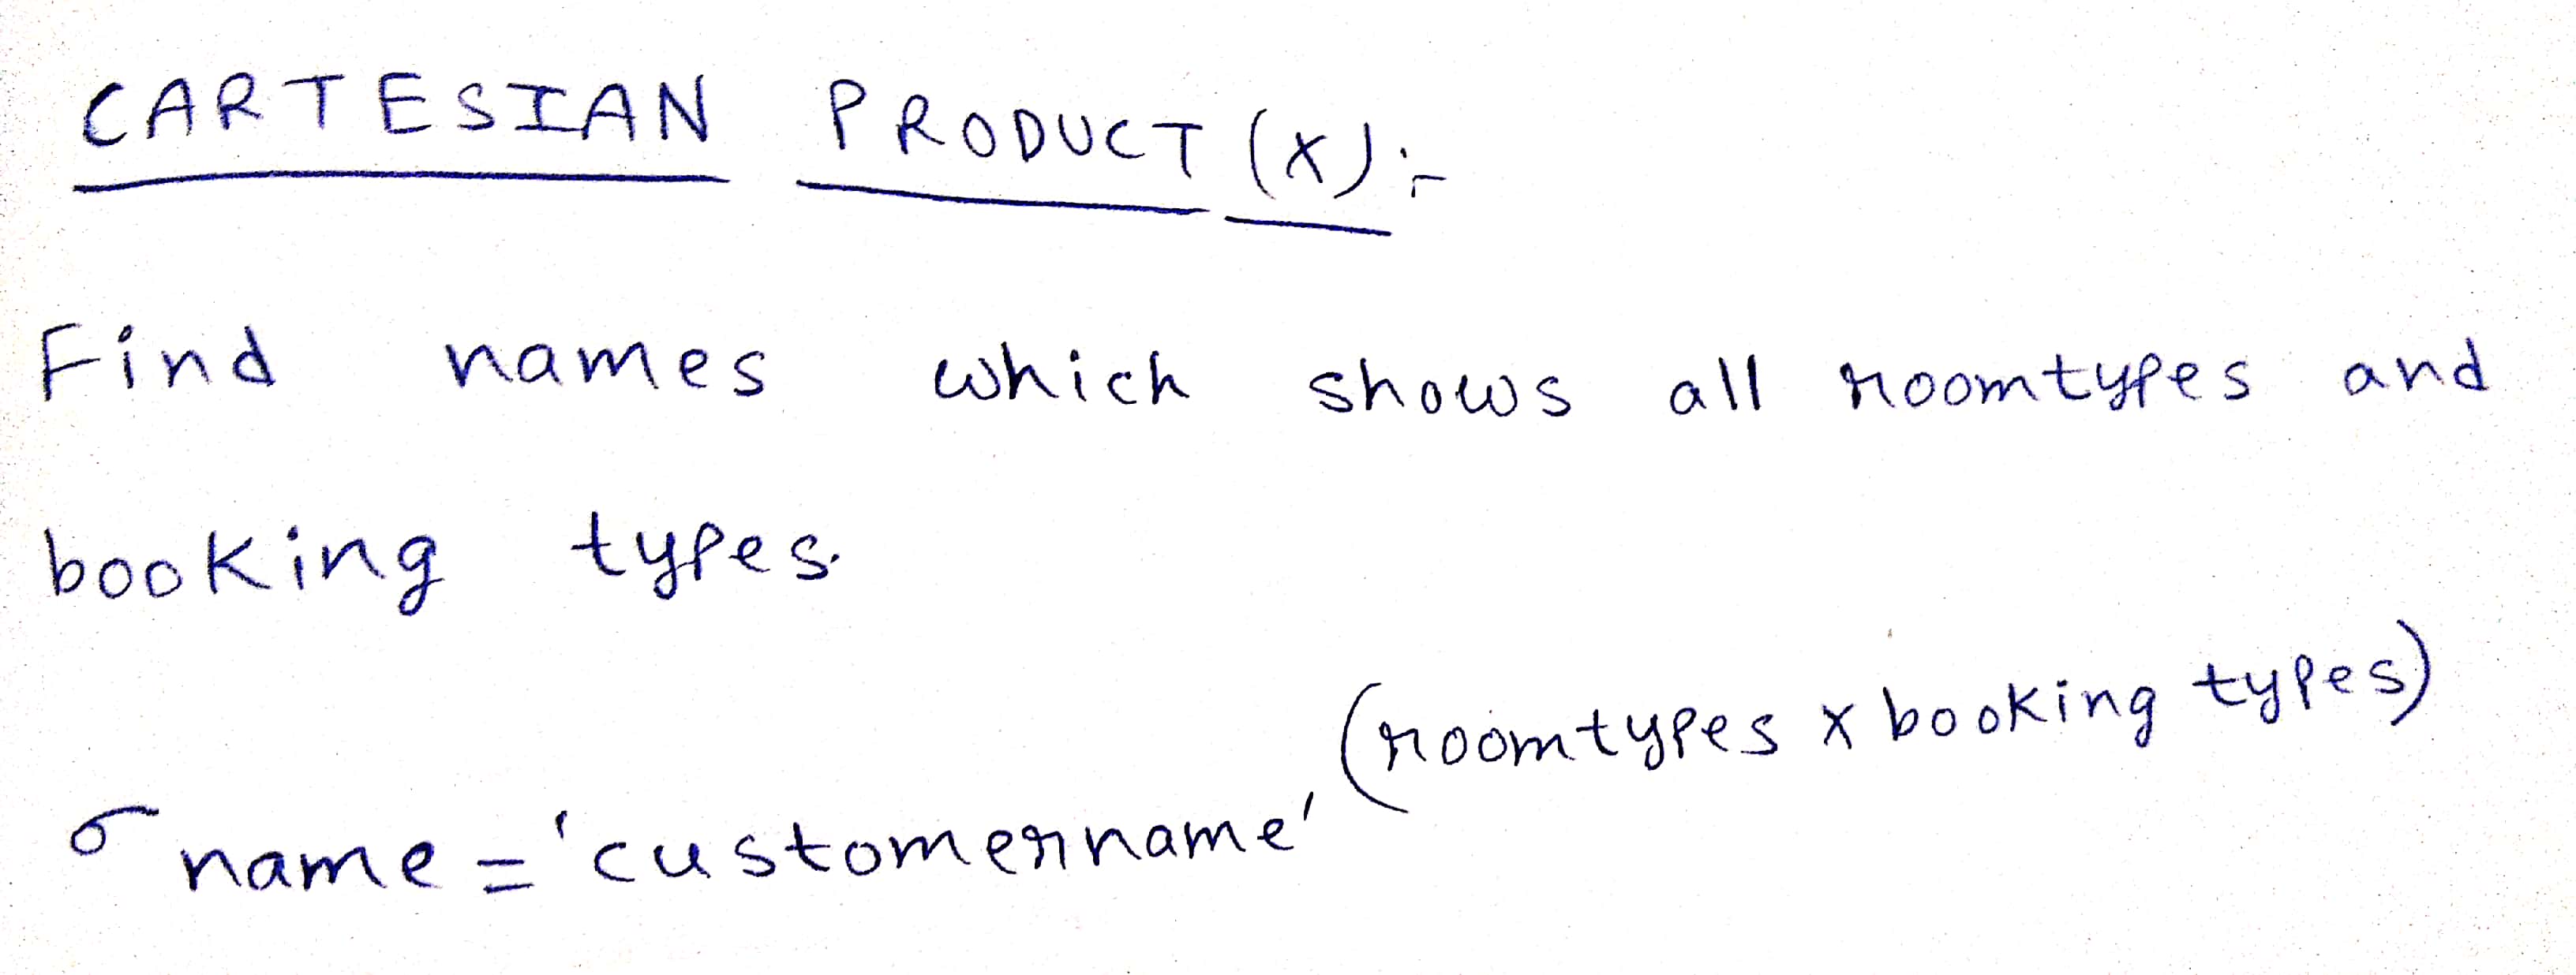 CARTESIAN PRODUCT (X):-
Find names which shows all roomtypes and
booking types.
σ name = 'customername' (roomtypes x booking types)